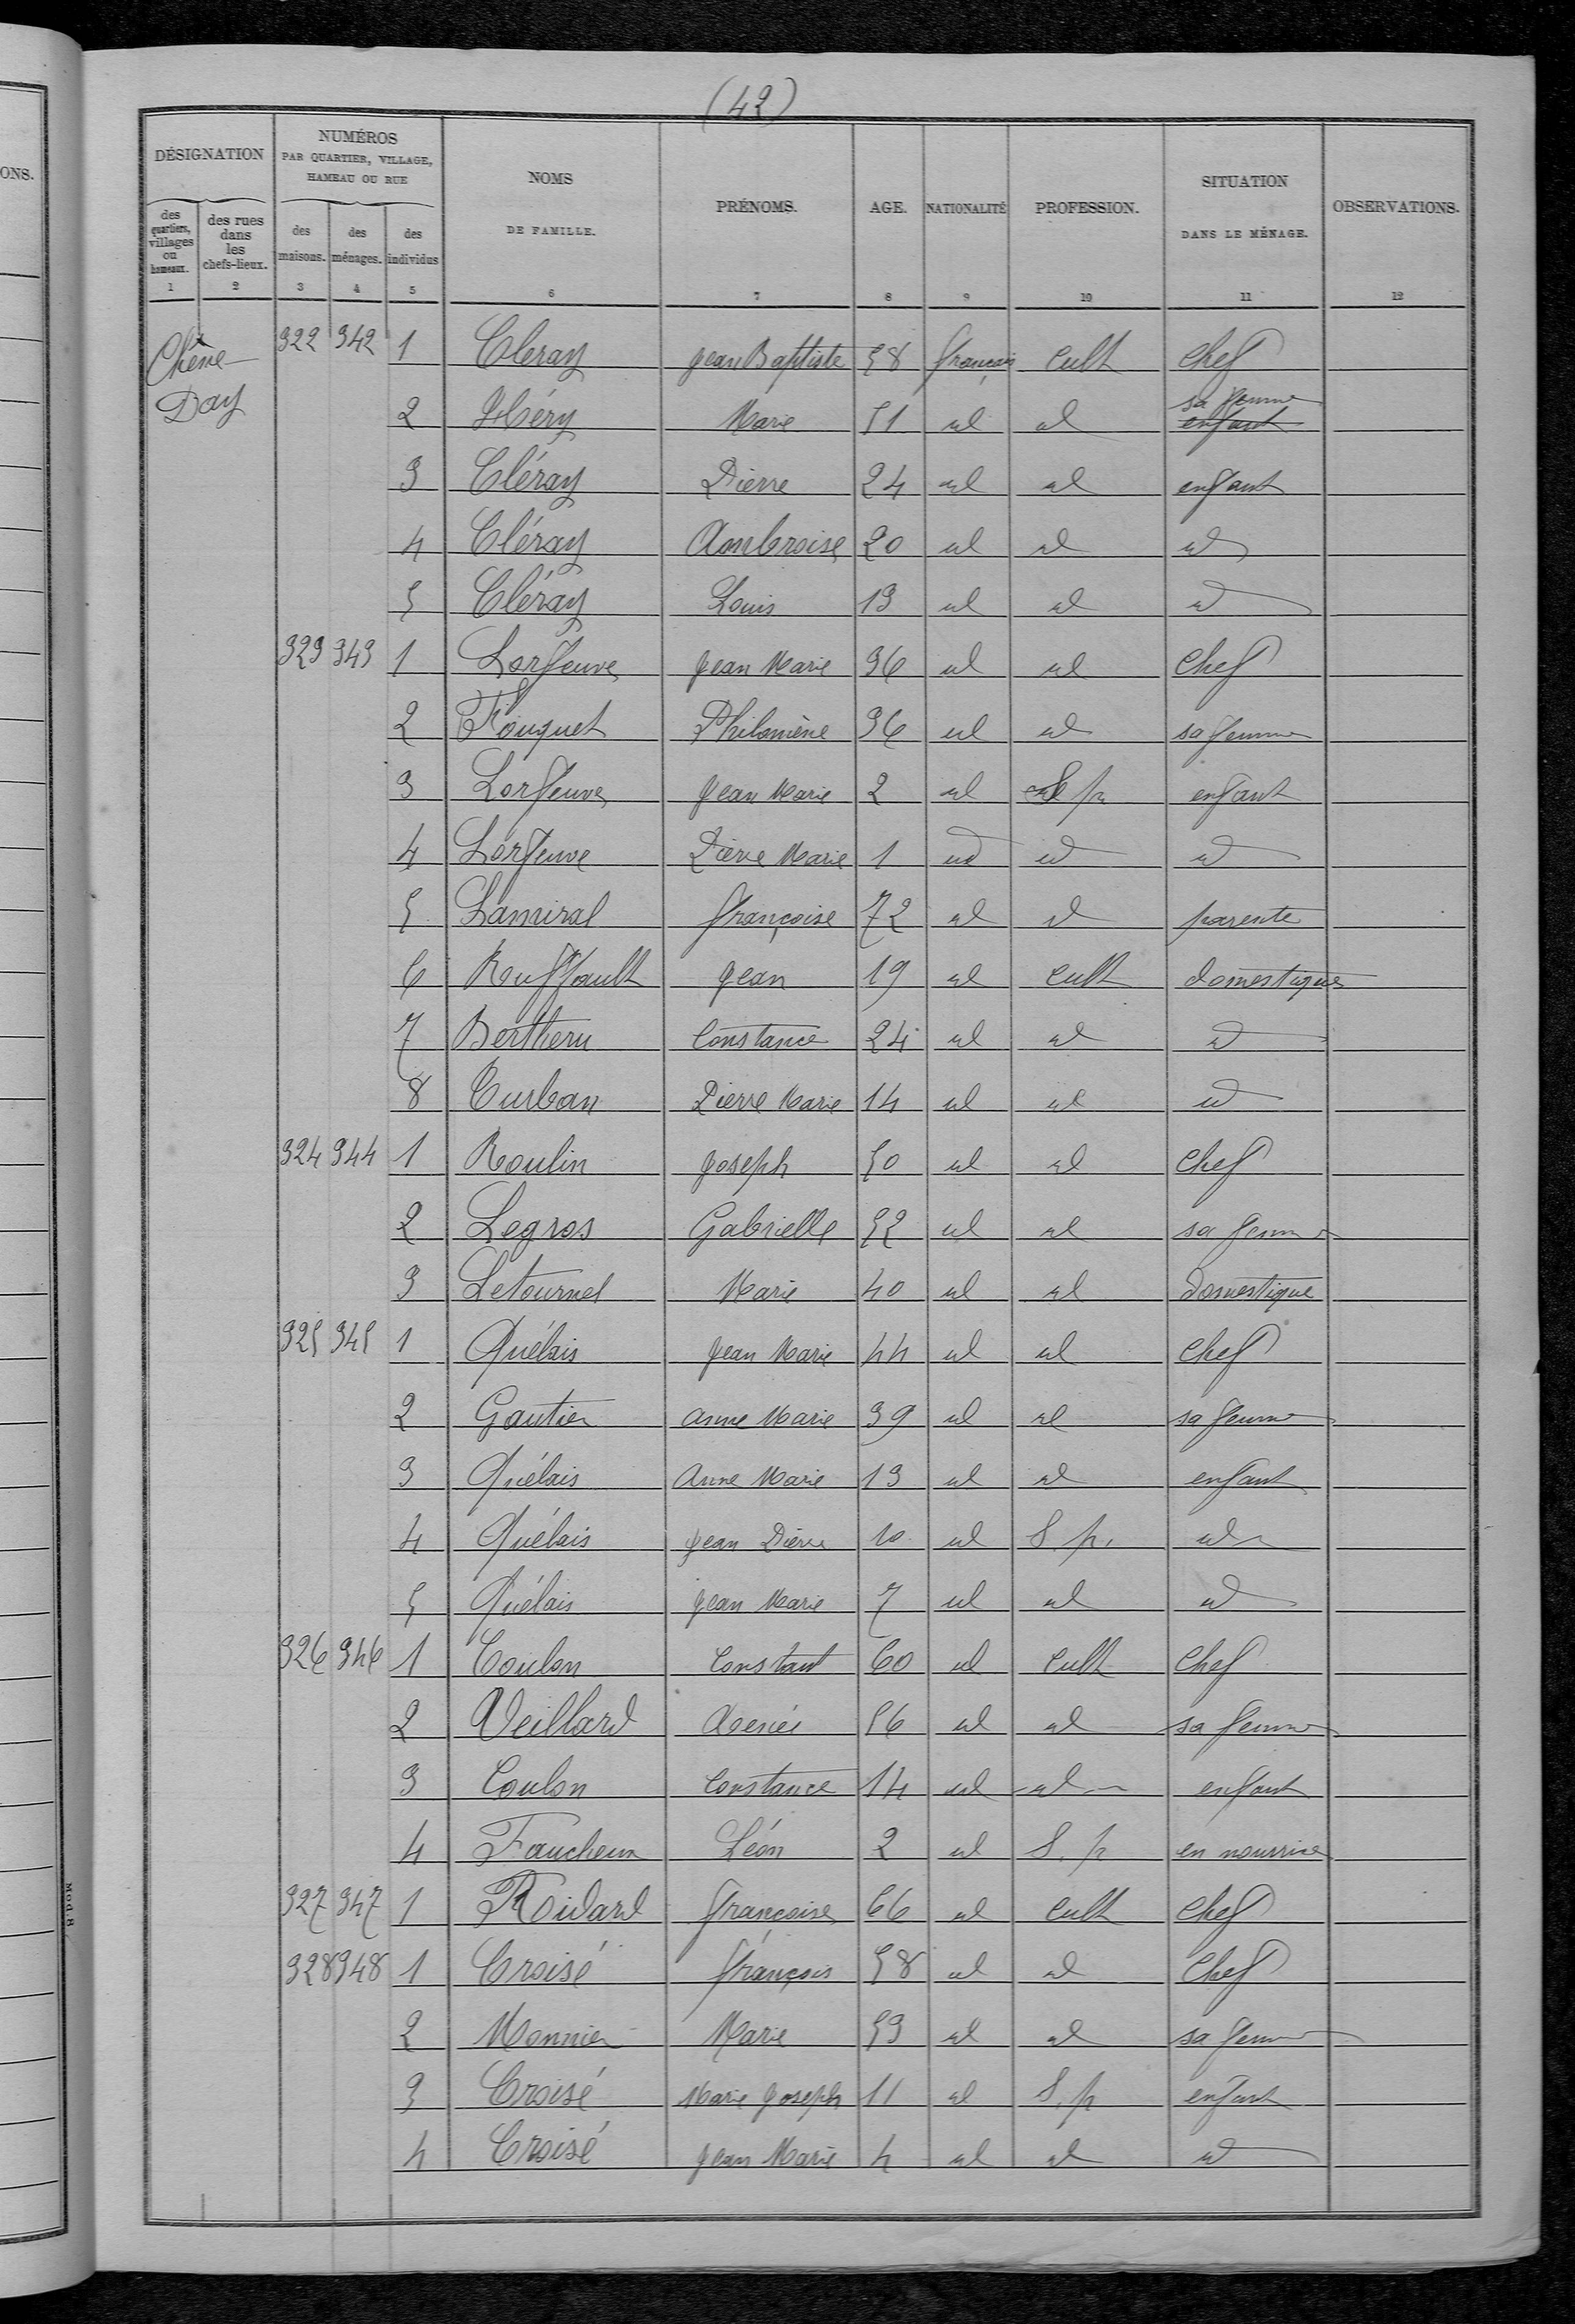 (42)
ONS.
DÉSIGNATION NUMÉROS PAR QUARTIER, VILLAGE, HAMEAU OU RUE NOMS DE FAMILLE. PRÉNOMS. AGE. NATIONALITÉ PROFESSION. SITUATION DANS LE MÉNAGE. OBSERVATIONS.
des quartiers, villages ou hameaux. des rues dans les chefs-lieux. des maisons. des ménages. des individus
1 2 3 4 5 6 7 8 9 10 11 12
Chêne Day
322 342 1 Cleray Jean Baptiste 58 français cult chef
2 Héry Marie 51 id id sa femme enfant
3 Cléray Pierre 24 id id enfant
4 Cléray Ambroise 20 id id id
5 Cléray Louis 13 id id id
323 343 1 Lorfeuve Jean Marie 36 id id chef
2 Fouquet Philomène 36 id id sa femme
3 Lorfeuve Jean Marie 2 id S p enfant
4 Lorfeuve Pierre Marie 1 id id id
5 Lamiral françoise 72 id id parente
6 Rouffault Jean 19 id cult domestique
7 Bertheru Constance 24 id id id
8 Turban Pierre Marie 14 id id id
324 344 1 Roulin Joseph 50 id id chef
2 Legros Gabrielle 52 id id sa femme
3 Letournel Marie 40 id id Domestique
325 345 1 Quélais Jean Marie 44 id id chef
2 Gautier anne Marie 39 id id sa femme
3 Quélais Anne Marie 13 id id enfant
4 Quélais Jean Pierre 10 id S. p. id
5 Quélais Jean Marie 7 id id id
326 346 1 Coulon Constant 60 id cult chef
2 Veillard 56 id id sa femme
3 Coulon Constance 14 id id enfant
4 Faucheux Léon 2 id S. p en nourrice
327 347 1 Ridard françoise 66 id cult chef
328 348 1 Croisé françois 58 id id chef
2 Monnier Marie 53 id id sa femme
3 Croisé Marie Joseph 11 id S. p enfant
4 Croisé Jean Marie 4 id id id
Mod. 8.